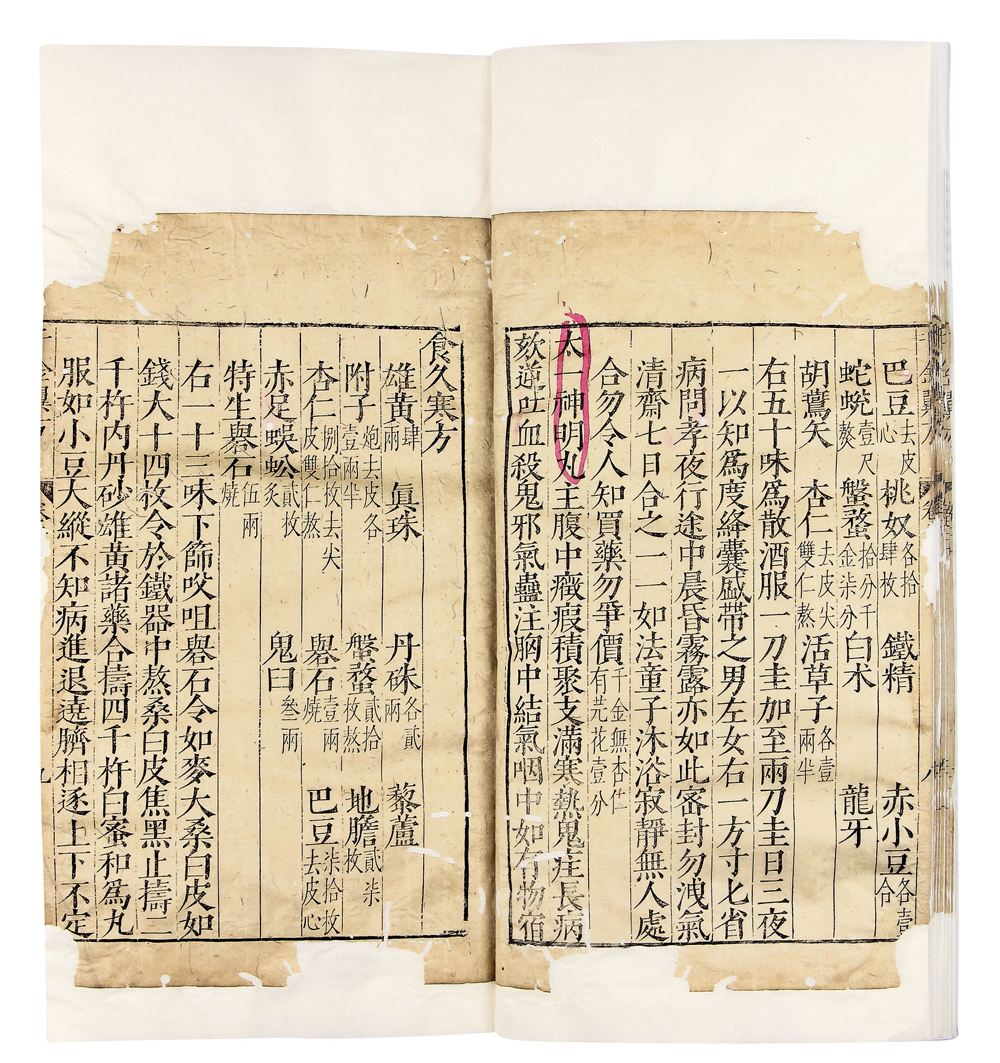 巴豆去皮心 桃奴各拾肆枚 鐵精 赤小豆各壹合
蛇蛻壹尺熬 盤蝥拾分千金柒分 白朮 龍牙
胡鷰矢 杏仁去皮尖雙仁熬 活草子各壹兩半
右五十味爲散酒服一刀圭加至兩刀圭日三夜
一以知爲度絳囊盛帶之男左女右一方寸匕省
病問孝夜行途中晨昏霧露亦如此密封勿洩氣
清齋七日合之一一如法童子沐浴寂靜無人處
合勿令人知買藥勿爭價千金無杏仁有芫花壹分
太一神明丸主腹中癥瘕積聚支滿寒熱鬼疰長病
欬逆吐血殺鬼邪氣蠱注胸中結氣咽中如有物宿
食久寒方
雄黃肆兩 眞珠 丹硃各貳兩 藜蘆
附子炮去皮各壹兩半 盤蝥貳拾枚熬 地膽貳柒枚
杏仁捌拾枚去尖皮雙仁熬 礜石壹兩燒 巴豆柒拾枚去皮心
赤足蜈蚣貳枚炙 鬼臼叁兩
特生礜石伍兩燒
右一十三味下篩㕮咀礜石令如麥大桑白皮如
錢大十四枚令於鐵器中熬桑白皮焦黑止擣二
千杵內丹砂雄黃諸藥合擣四千杵白蜜和爲丸
服如小豆大縱不知病進退遶臍相逐上下不定